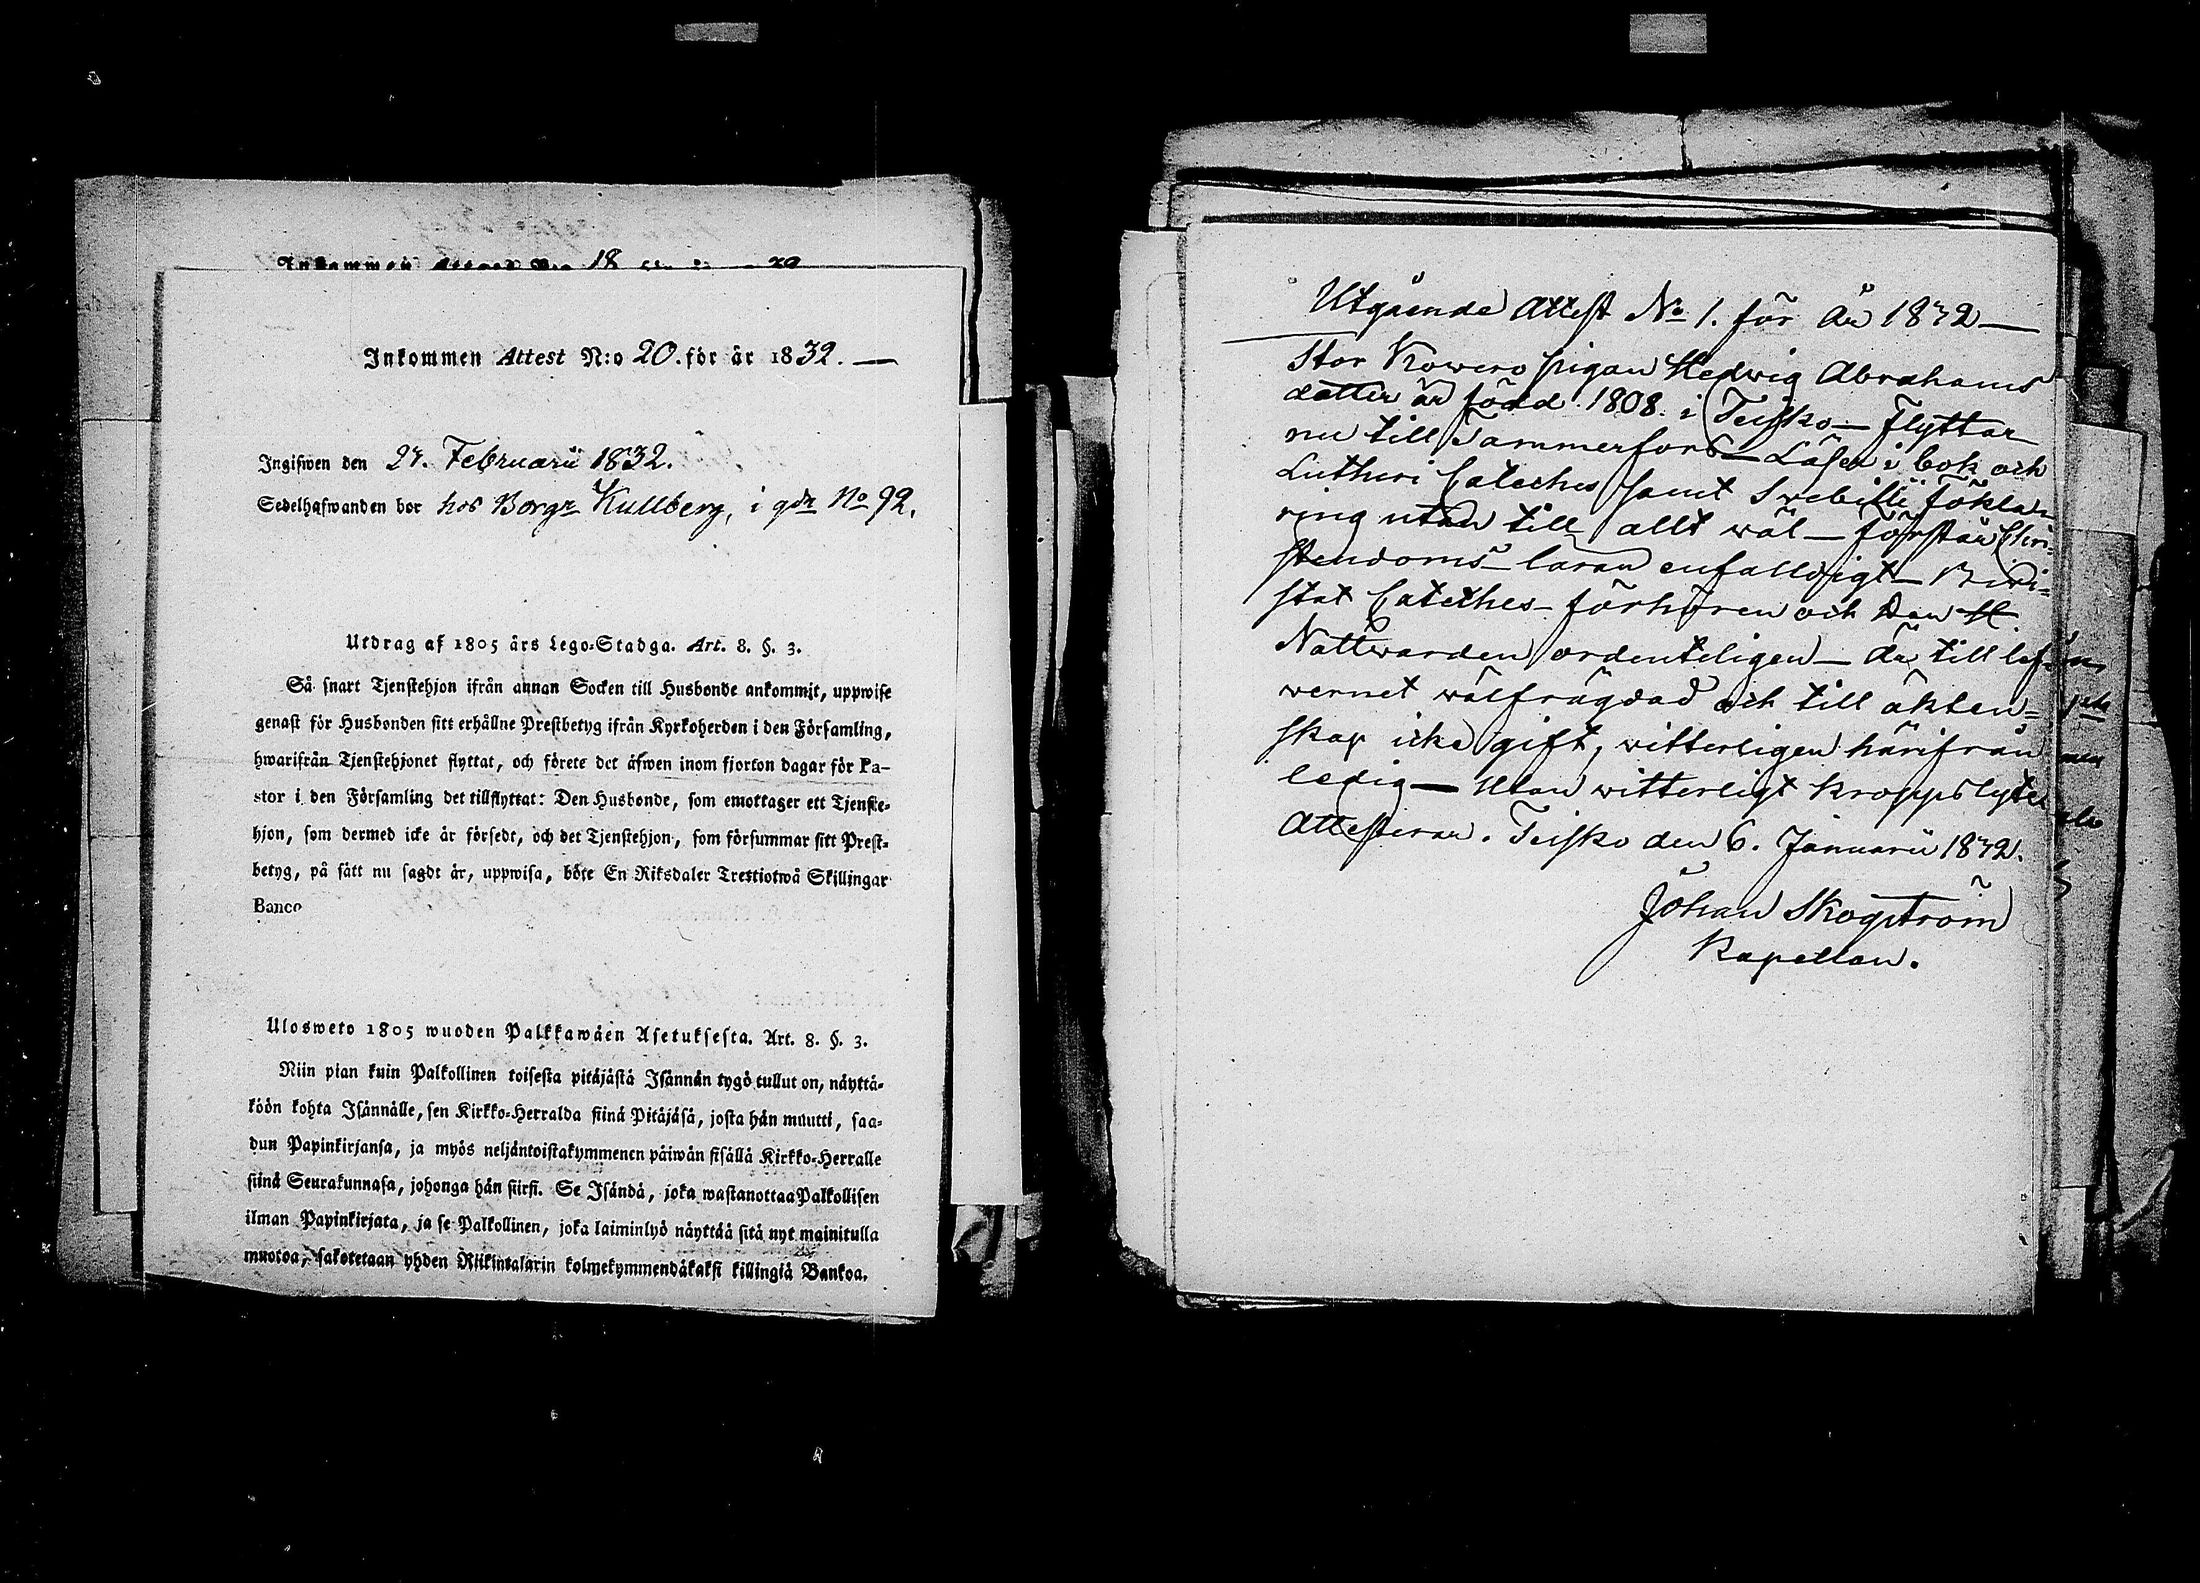 Inkommen Attest N:o 18
Inkommen Attest N:o 20. för år 1832. —
Ingifwen den 27. Februarii 1832.
Sedelhafwanden bor hos Borgr Kullberg, i gdn No 92.
Utdrag af 1805 års Lego-Stadga. Art. 8. §. 3.
Så snart Tjenstehjon ifrån annan Socken till Husbonde ankommit, uppwise
genast för Husbonden sitt erhållne Prestbetyg ifrån Kyrkoherden i den Församling,
hwarifrån Tjenstehjonet flyttat, och förete det äfwen inom fjorton dagar för Pa-
stor i den Församling det tillflyttat: Den Husbonde, som emottager ett Tjenste-
hjon, som dermed icke är försedt, och det Tjenstehjon, som försummar sitt Prest-
betyg, på sätt nu sagdt är, uppwisa, böte En Riksdaler Trettiotwå Skillingar
Banco
Ulosweto 1805 wuoden Palkkawäen Asetuksesta. Art. 8. §. 3.
Niin pian kuin Palkollinen toisesta pitäjästä Isännän tygö tullut on, näyttä-
köön kohta Isännälle, sen Kirkko-Herralda siinä Pitäjäsä, josta hän muutti, saa-
dun Papinkirjansa, ja myös neljäntoistakymmenen päiwän sisällä Kirkko-Herralle
siinä Seurakunnasa, johonga hän siirsi. Se Isändä, joka wastanottaa Palkollisen
ilman Papinkirjata, ja se Palkollinen, joka laiminlyö näyttää sitä nyt mainitulla
muotoa, sakotetaan yhden Riikintalarin kolmekymmendäkaksi killingiä Bankoa.
Utgående Attest No 1. för År 1832 —
Stor Kowero pigan Hedwig Abrahams
dotter är född 1808. i Teisko — Flyttar
nu till Tammerfors — Läser i bok och
Lutheri Cateches samt Svebilii förkla-
ring utan till allt wäl — förstår Chri-
stendoms läran enfalldigt — Bivi-
stat Cateches-förhören och Den H.
Nattwarden ordenteligen — är till lef-
wernet wälfrägdad och till äkten-
skap icke gift, vitterligen härifrån
ledig — Utan witterligt kroppslyte
Attesterar. Teisko den 6. Januarii 1832.
Johan Skogström
Kapellan.